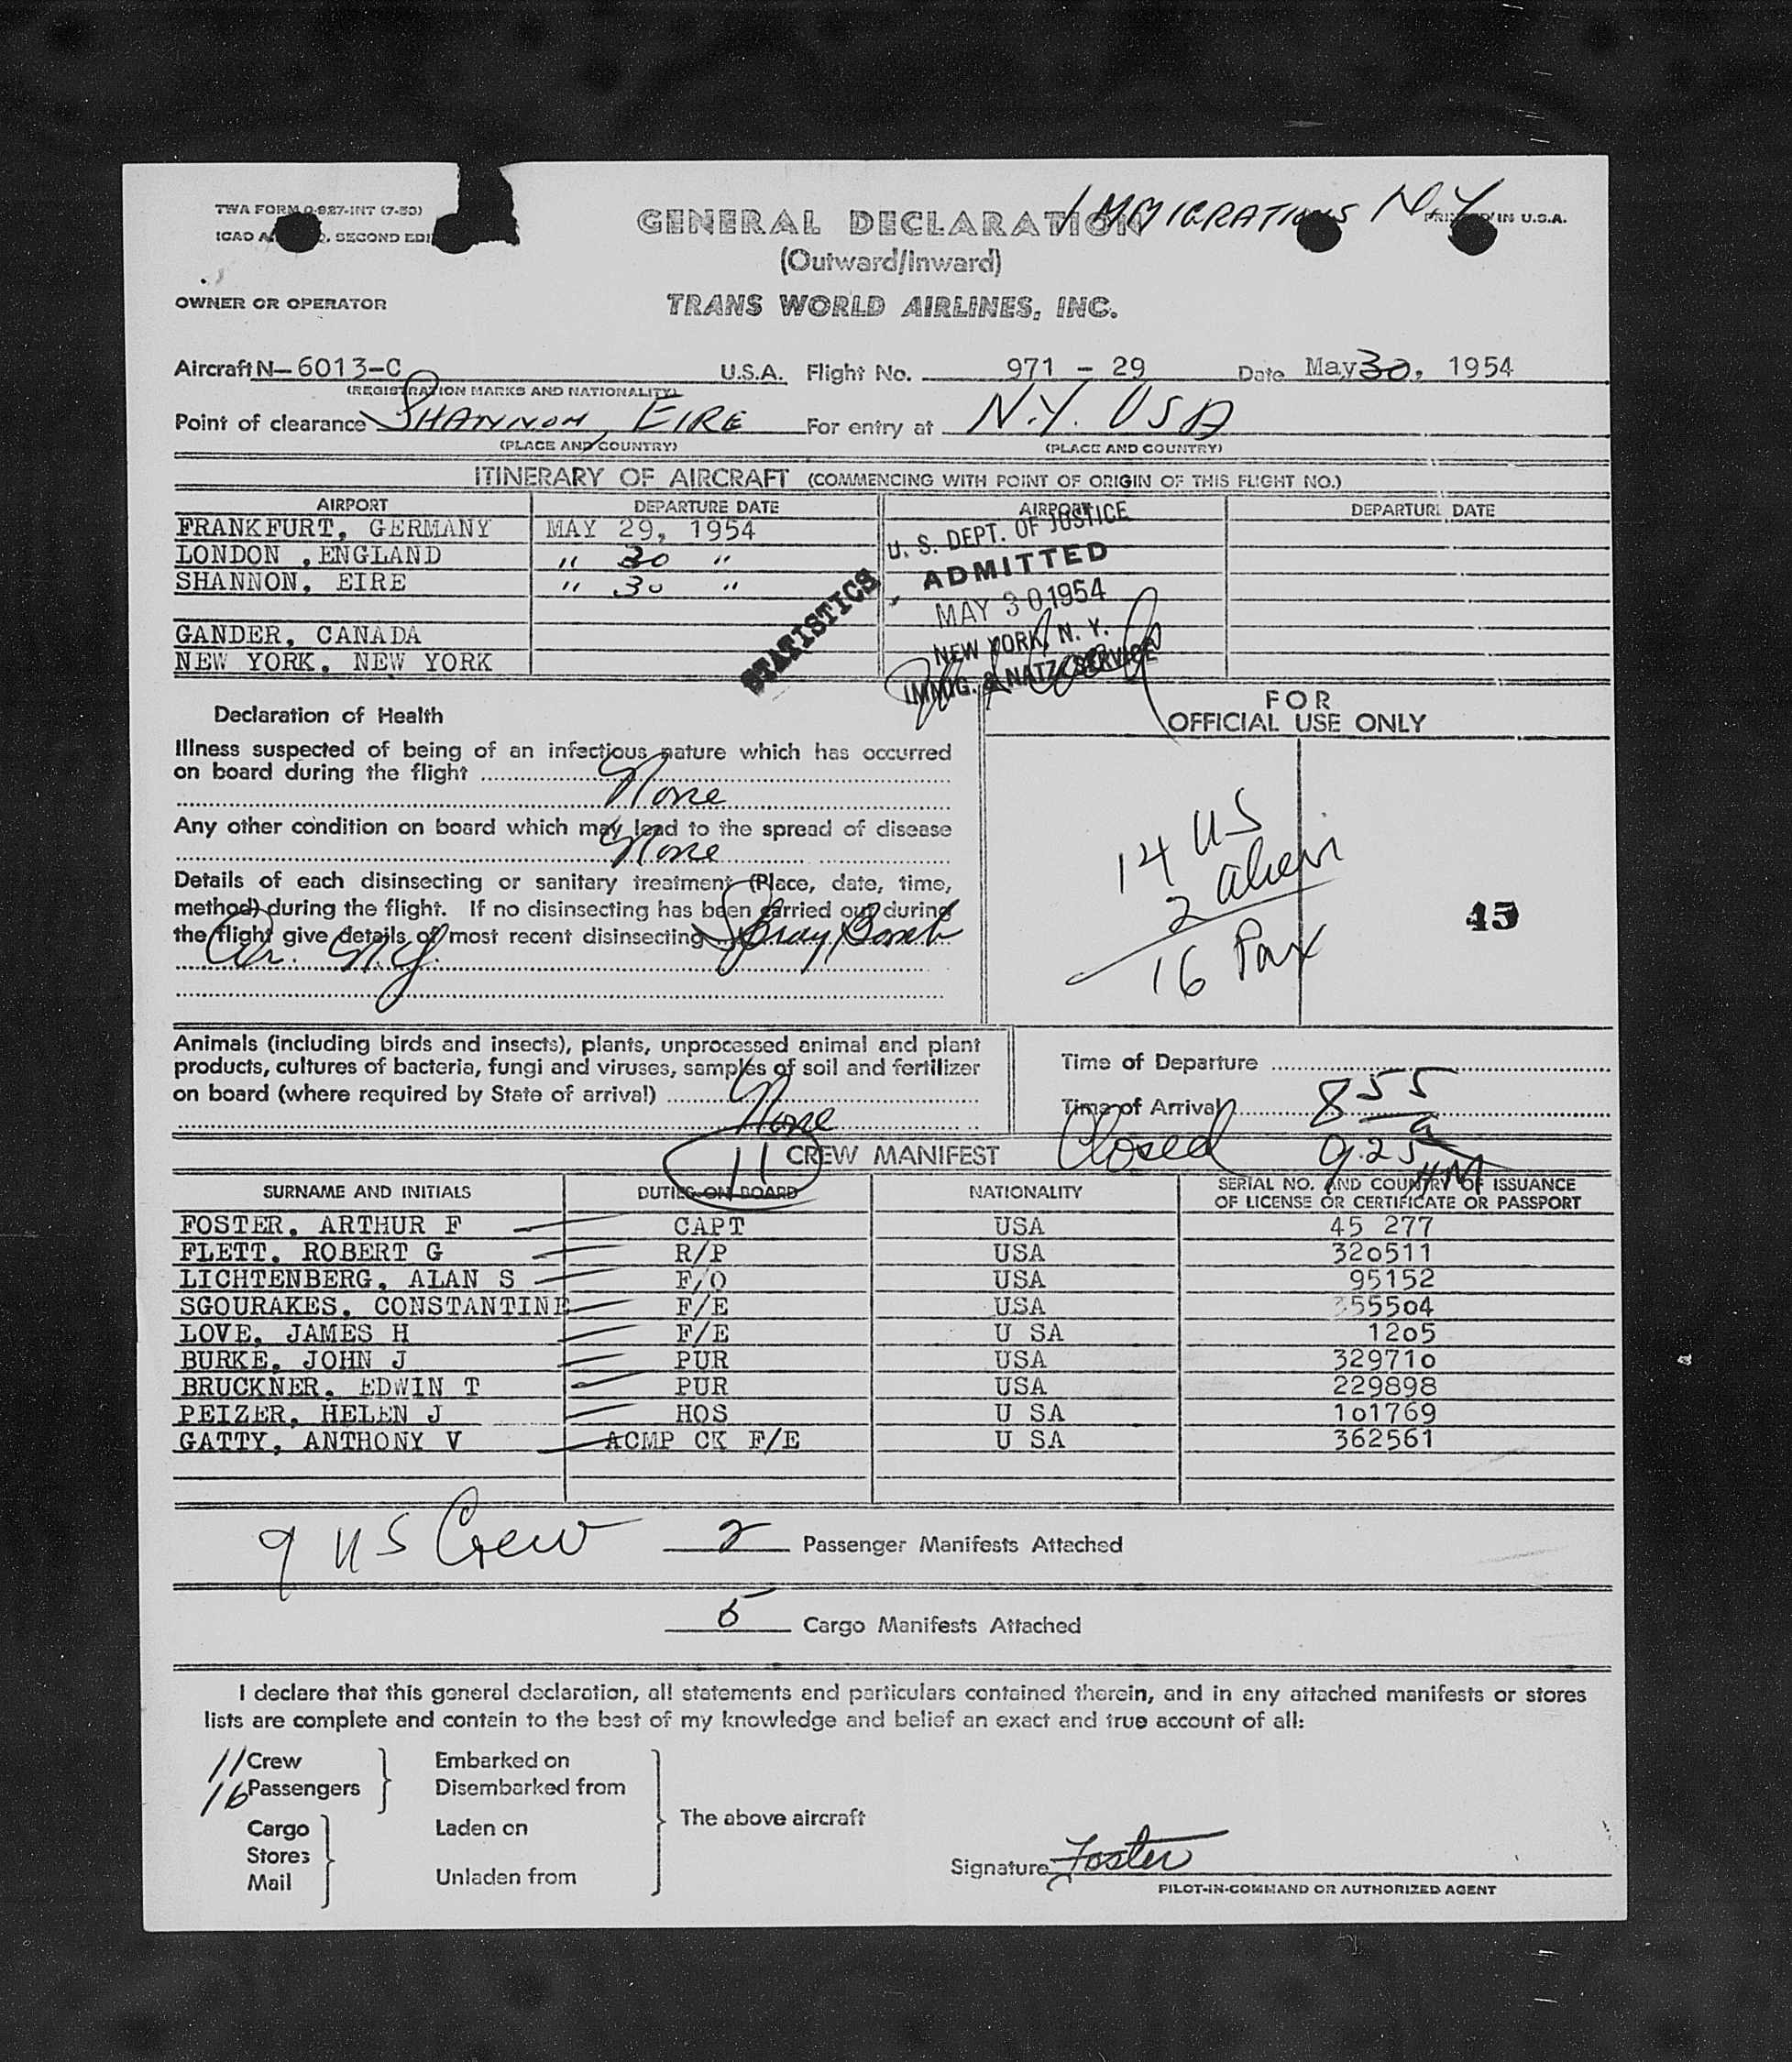 TWA FORM O-927-INT (7-50)
IMMIGRATIONS N.Y.
ICAO SECOND EDI
IN U.S.A.
GENERAL DECLARATION
(Outward/Inward)
OWNER OR OPERATOR
TRANS WORLD AIRLINES, INC.
Aircraft N-6013-C U.S.A. Flight No. 971 - 29 Date May 30, 1954
(REGISTRATION MARKS AND NATIONALITY)
Point of clearance SHANNON, EIRE For entry at N.Y. USA
(PLACE AND COUNTRY) (PLACE AND COUNTRY)
ITINERARY OF AIRCRAFT (COMMENCING WITH POINT OF ORIGIN OF THIS FLIGHT NO.)
AIRPORT DEPARTURE DATE AIRPORT DEPARTURE DATE
FRANKFURT, GERMANY MAY 29, 1954
LONDON ,ENGLAND " 30 "
SHANNON, EIRE " 30 "
GANDER, CANADA
NEW YORK, NEW YORK
STATISTICS
U. S. DEPT. OF JUSTICE
ADMITTED
MAY 30 1954
NEW YORK, N. Y.
IMMIG. & NATZ. SERVICE
Declaration of Health
FOR
OFFICIAL USE ONLY
Illness suspected of being of an infectious nature which has occurred
on board during the flight
None
Any other condition on board which may lead to the spread of disease
None
Details of each disinsecting or sanitary treatment (Place, date, time,
method) during the flight. If no disinsecting has been carried out during
the flight give details of most recent disinsecting Spray Bomb
Ar. N.Y.
14 US
2 alien
16 Pax
45
Animals (including birds and insects), plants, unprocessed animal and plant
products, cultures of bacteria, fungi and viruses, samples of soil and fertilizer
on board (where required by State of arrival)
None
Time of Departure
Time of Arrival 855 a
Closed 9.25 HM
11 CREW MANIFEST
SURNAME AND INITIALS DUTIES ON BOARD NATIONALITY SERIAL NO. AND COUNTRY OF ISSUANCE
OF LICENSE OR CERTIFICATE OR PASSPORT
FOSTER, ARTHUR F CAPT USA 45 277
FLETT, ROBERT G R/P USA 320511
LICHTENBERG, ALAN S F/O USA 95152
SGOURAKES, CONSTANTINE F/E USA 355504
LOVE, JAMES H F/E U SA 1205
BURKE, JOHN J PUR USA 329710
BRUCKNER, EDWIN T PUR USA 229898
PEIZER, HELEN J HOS U SA 101769
GATTY, ANTHONY V ACMP CK F/E U SA 362561
9 US Crew 2 Passenger Manifests Attached
5 Cargo Manifests Attached
I declare that this general declaration, all statements and particulars contained therein, and in any attached manifests or stores
lists are complete and contain to the best of my knowledge and belief an exact and true account of all:
11 Crew Embarked on
16 Passengers Disembarked from
The above aircraft
Cargo Laden on
Stores
Mail Unladen from
Signature Foster
PILOT-IN-COMMAND OR AUTHORIZED AGENT